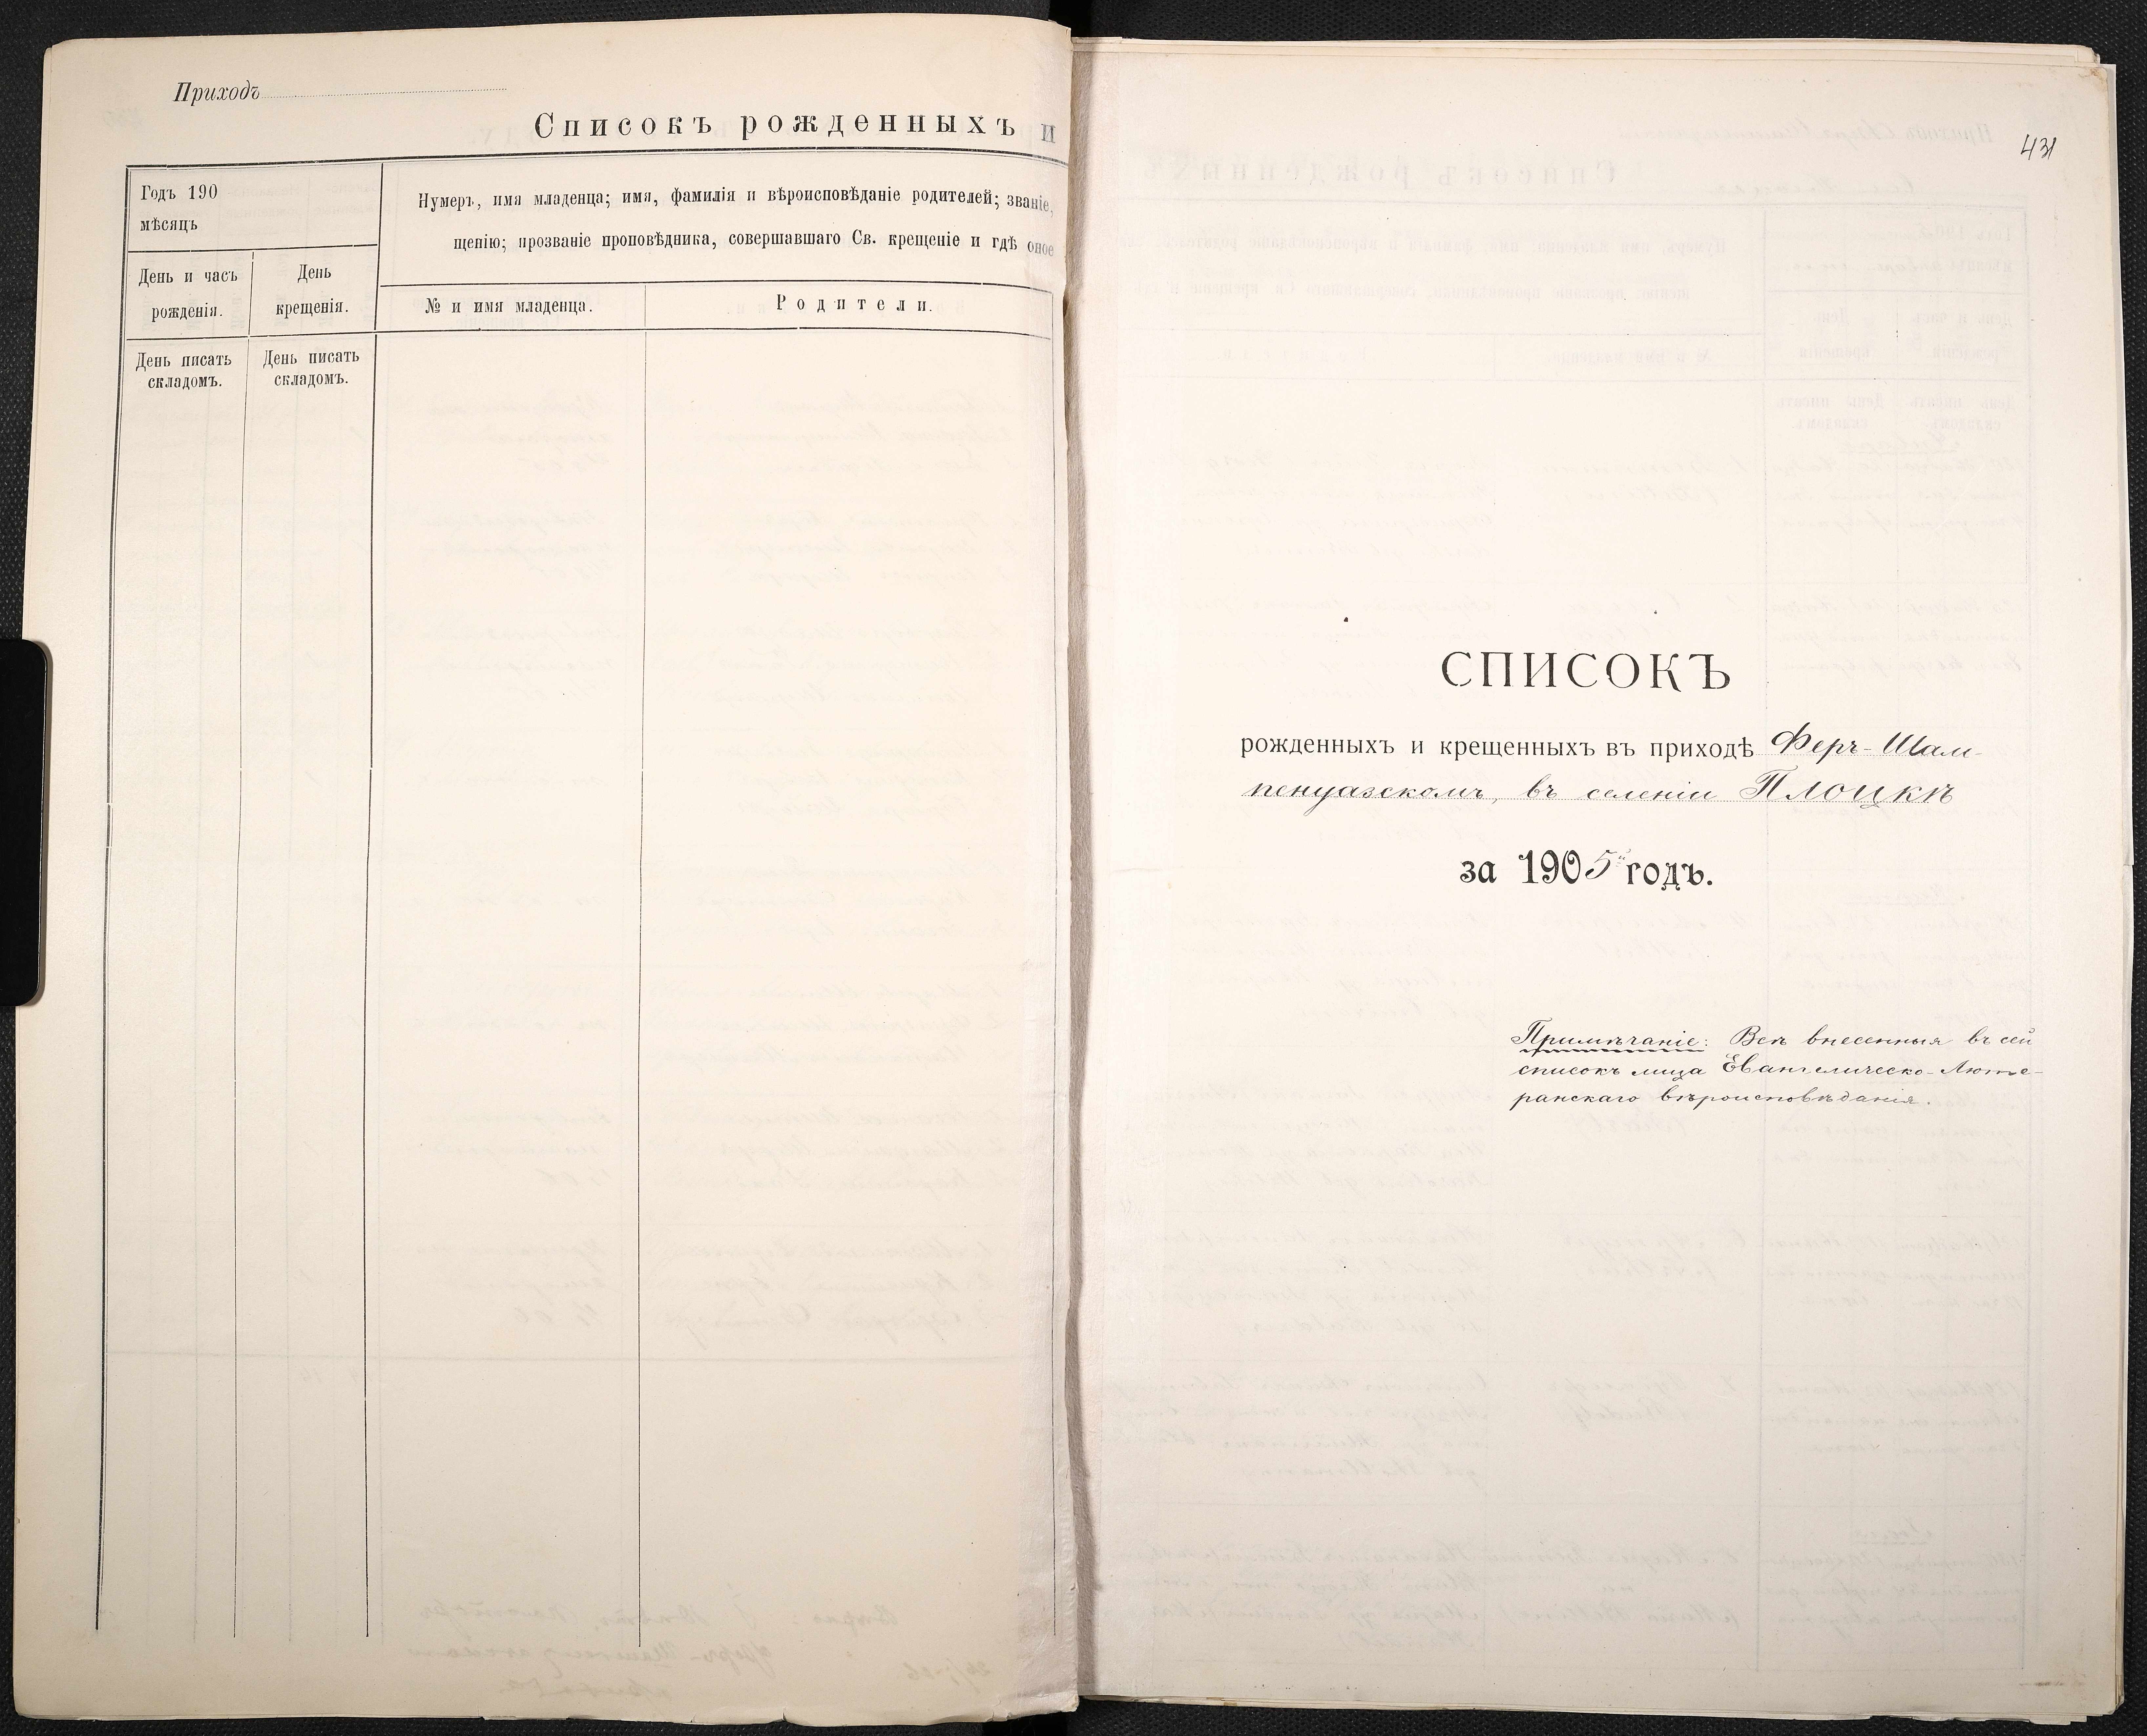 Приходъ
Списокъ рожденныхъ и
Годъ 190
мѣсяцъ
Нумеръ, имя младенца; имя, фамилія и вѣроисповѣданіе родителей; званіе,
щенію; прозваніе проповѣдника, совершавшаго Св. крещеніе и гдѣ оное
День и часъ
рожденія.
День
крещенія.
№ и имя младенца.
Родители.
День писать
складомъ.
День писать
складомъ.
431
СПИСОКЪ
рожденныхъ и крещенныхъ въ приходѣ Феръ-Шам-
пенуазскомъ, въ селеніи Плоцкѣ
за 1905й годъ.
Примѣчаніе: Всѣ внесенныя въ сей
списокъ лица Евангелическо-Люте-
ранскаго вѣроисповѣданія.